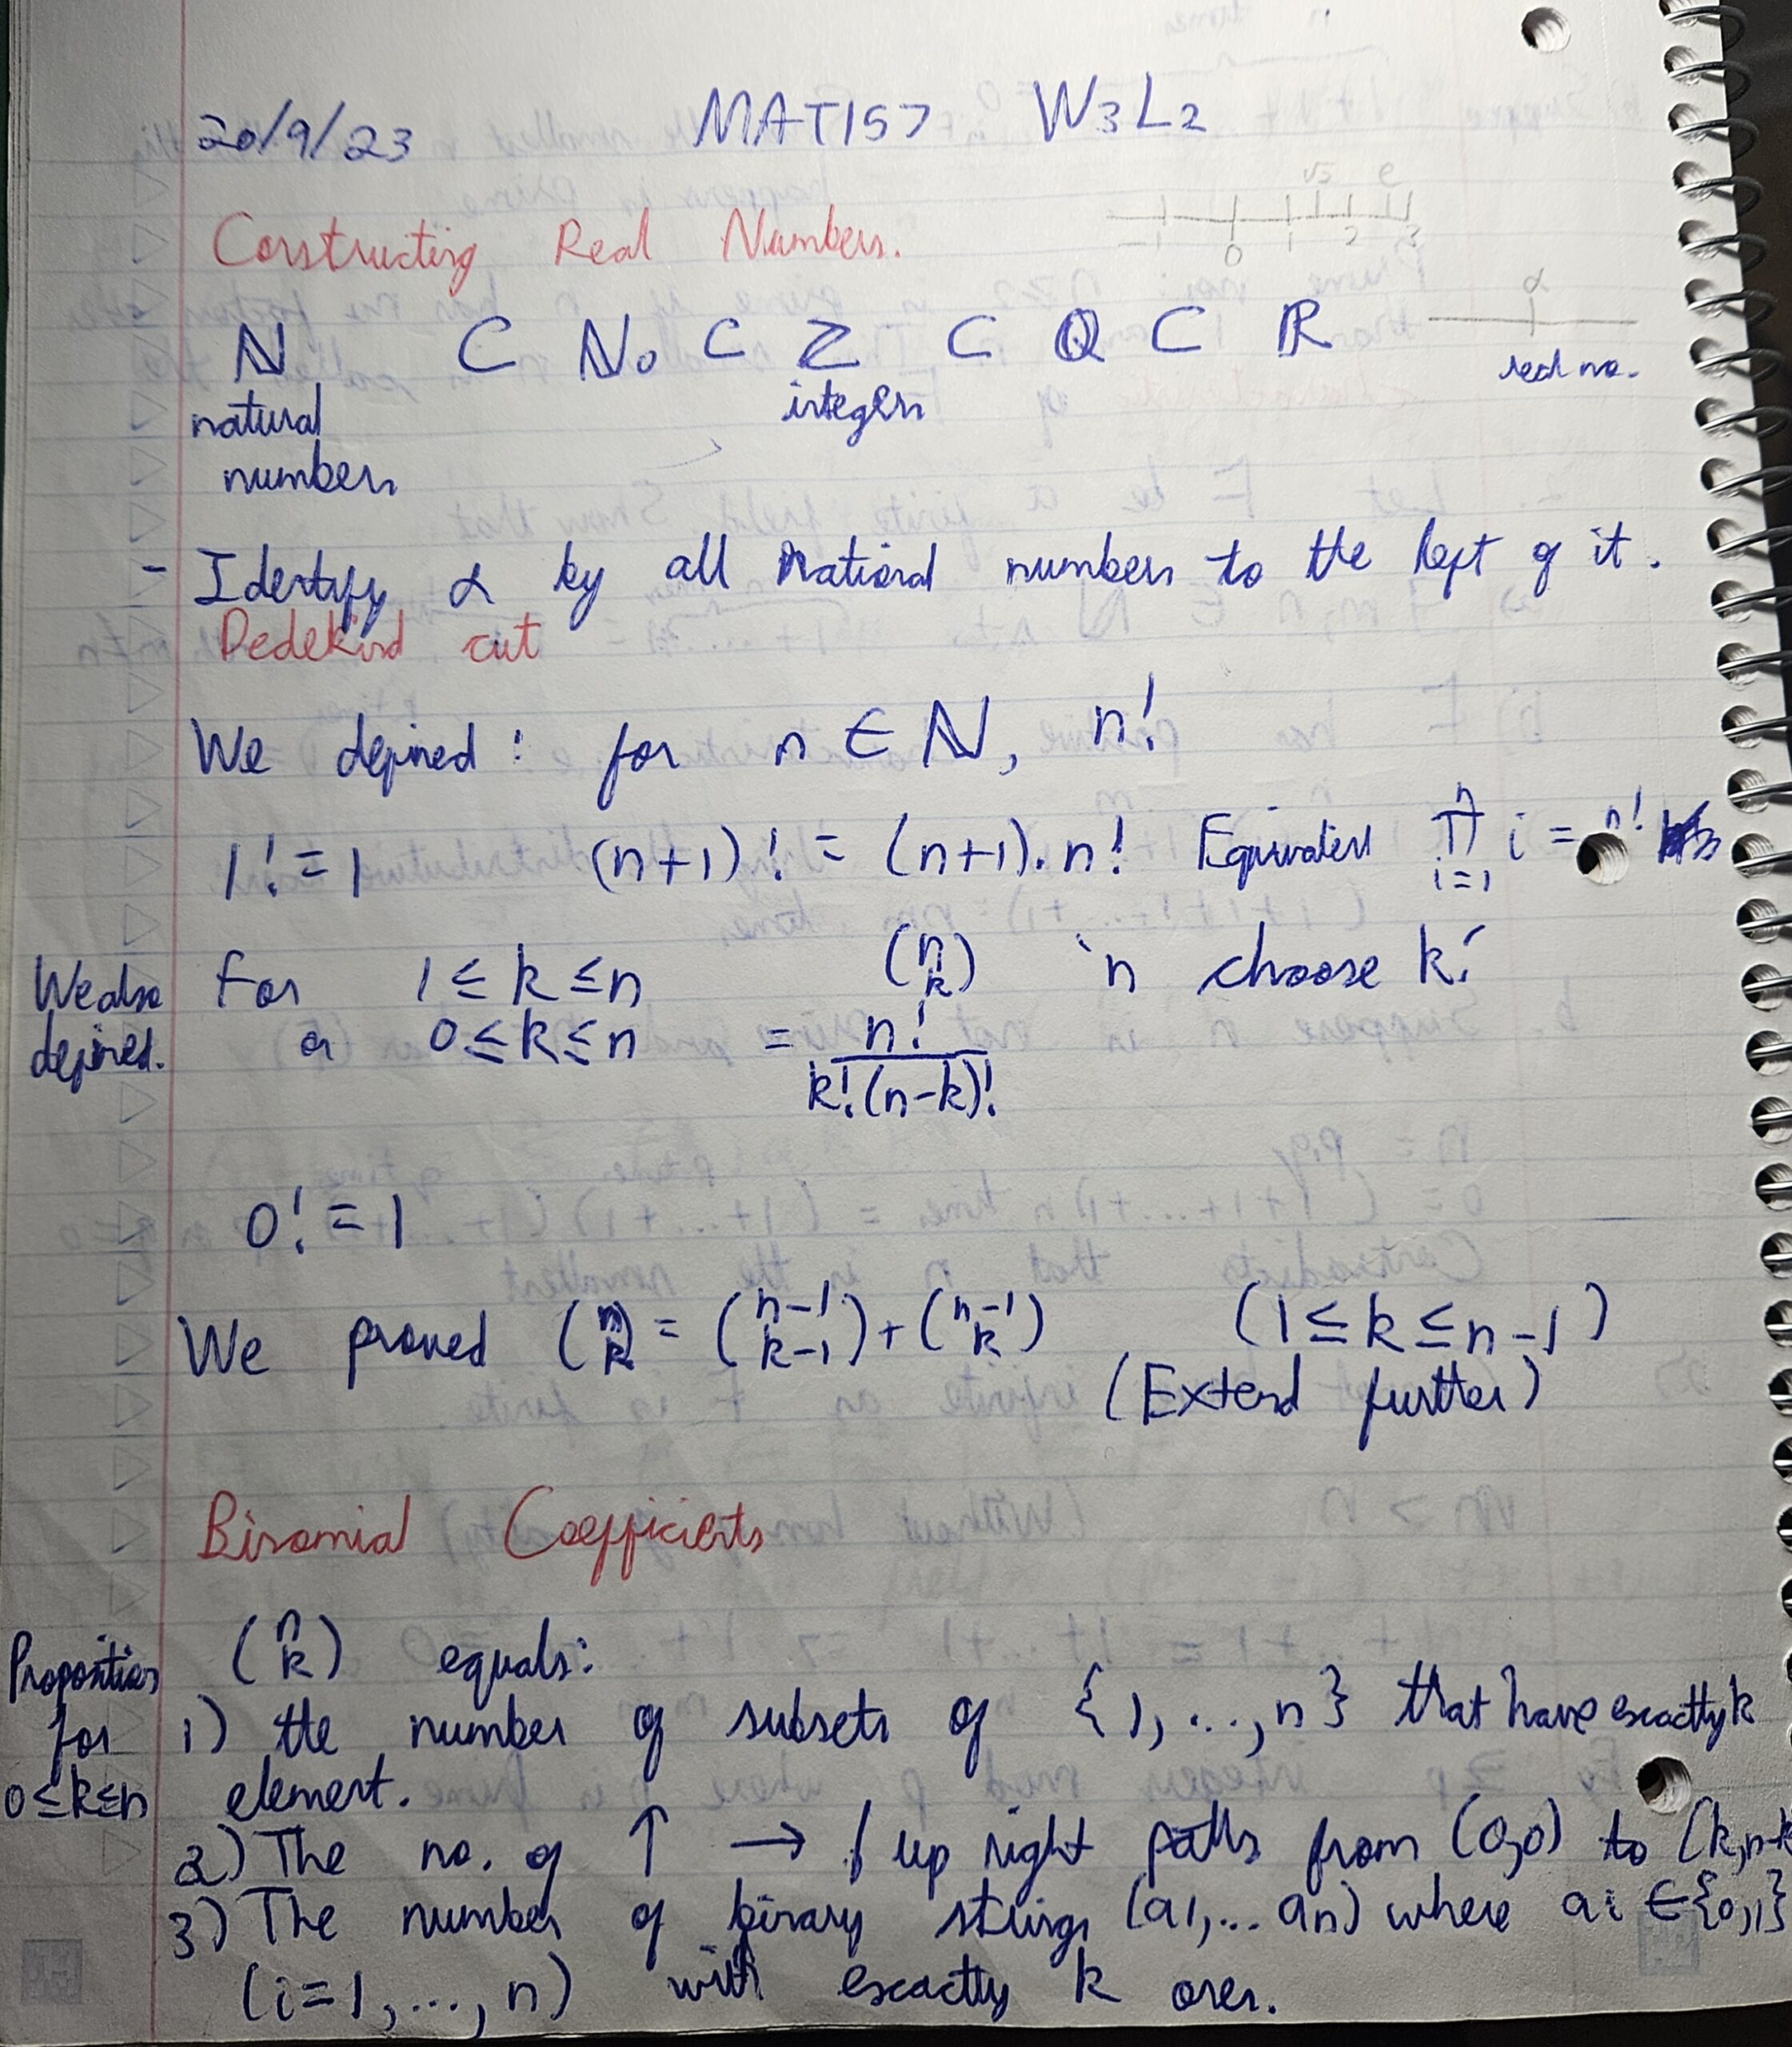 20/9/23 MAT157 W3L2
Constructing Real Numbers.
√2 e
-1 0 1 2 3
ℕ ⊂ ℕ₀ ⊂ ℤ ⊂ ℚ ⊂ ℝ
α
natural integers real no.
numbers
- Identify α by all rational numbers to the left of it.
Dedekind cut
We defined : for n ∈ ℕ, n!
1! = 1 (n+1)! = (n+1)·n! Equivalent ∏_{i=1}^{n} i = n!
We also defined. For 1 ≤ k ≤ n (n k) 'n choose k'
or 0 ≤ k ≤ n = n! / k!(n-k)!
0! = 1
We proved (n k) = (n-1 k-1) + (n-1 k) (1 ≤ k ≤ n-1)
(Extend further)
Binomial Coefficients
Properties for 0≤k≤n (n k) equals:
1) the number of subsets of {1, ..., n} that have exactly k
element.
2) The no. of ↑ → / up right paths from (0,0) to (k,n-k
3) The number of binary strings (a1,... an) where ai ∈ {0,1}
(i=1, ..., n) with exactly k ones.